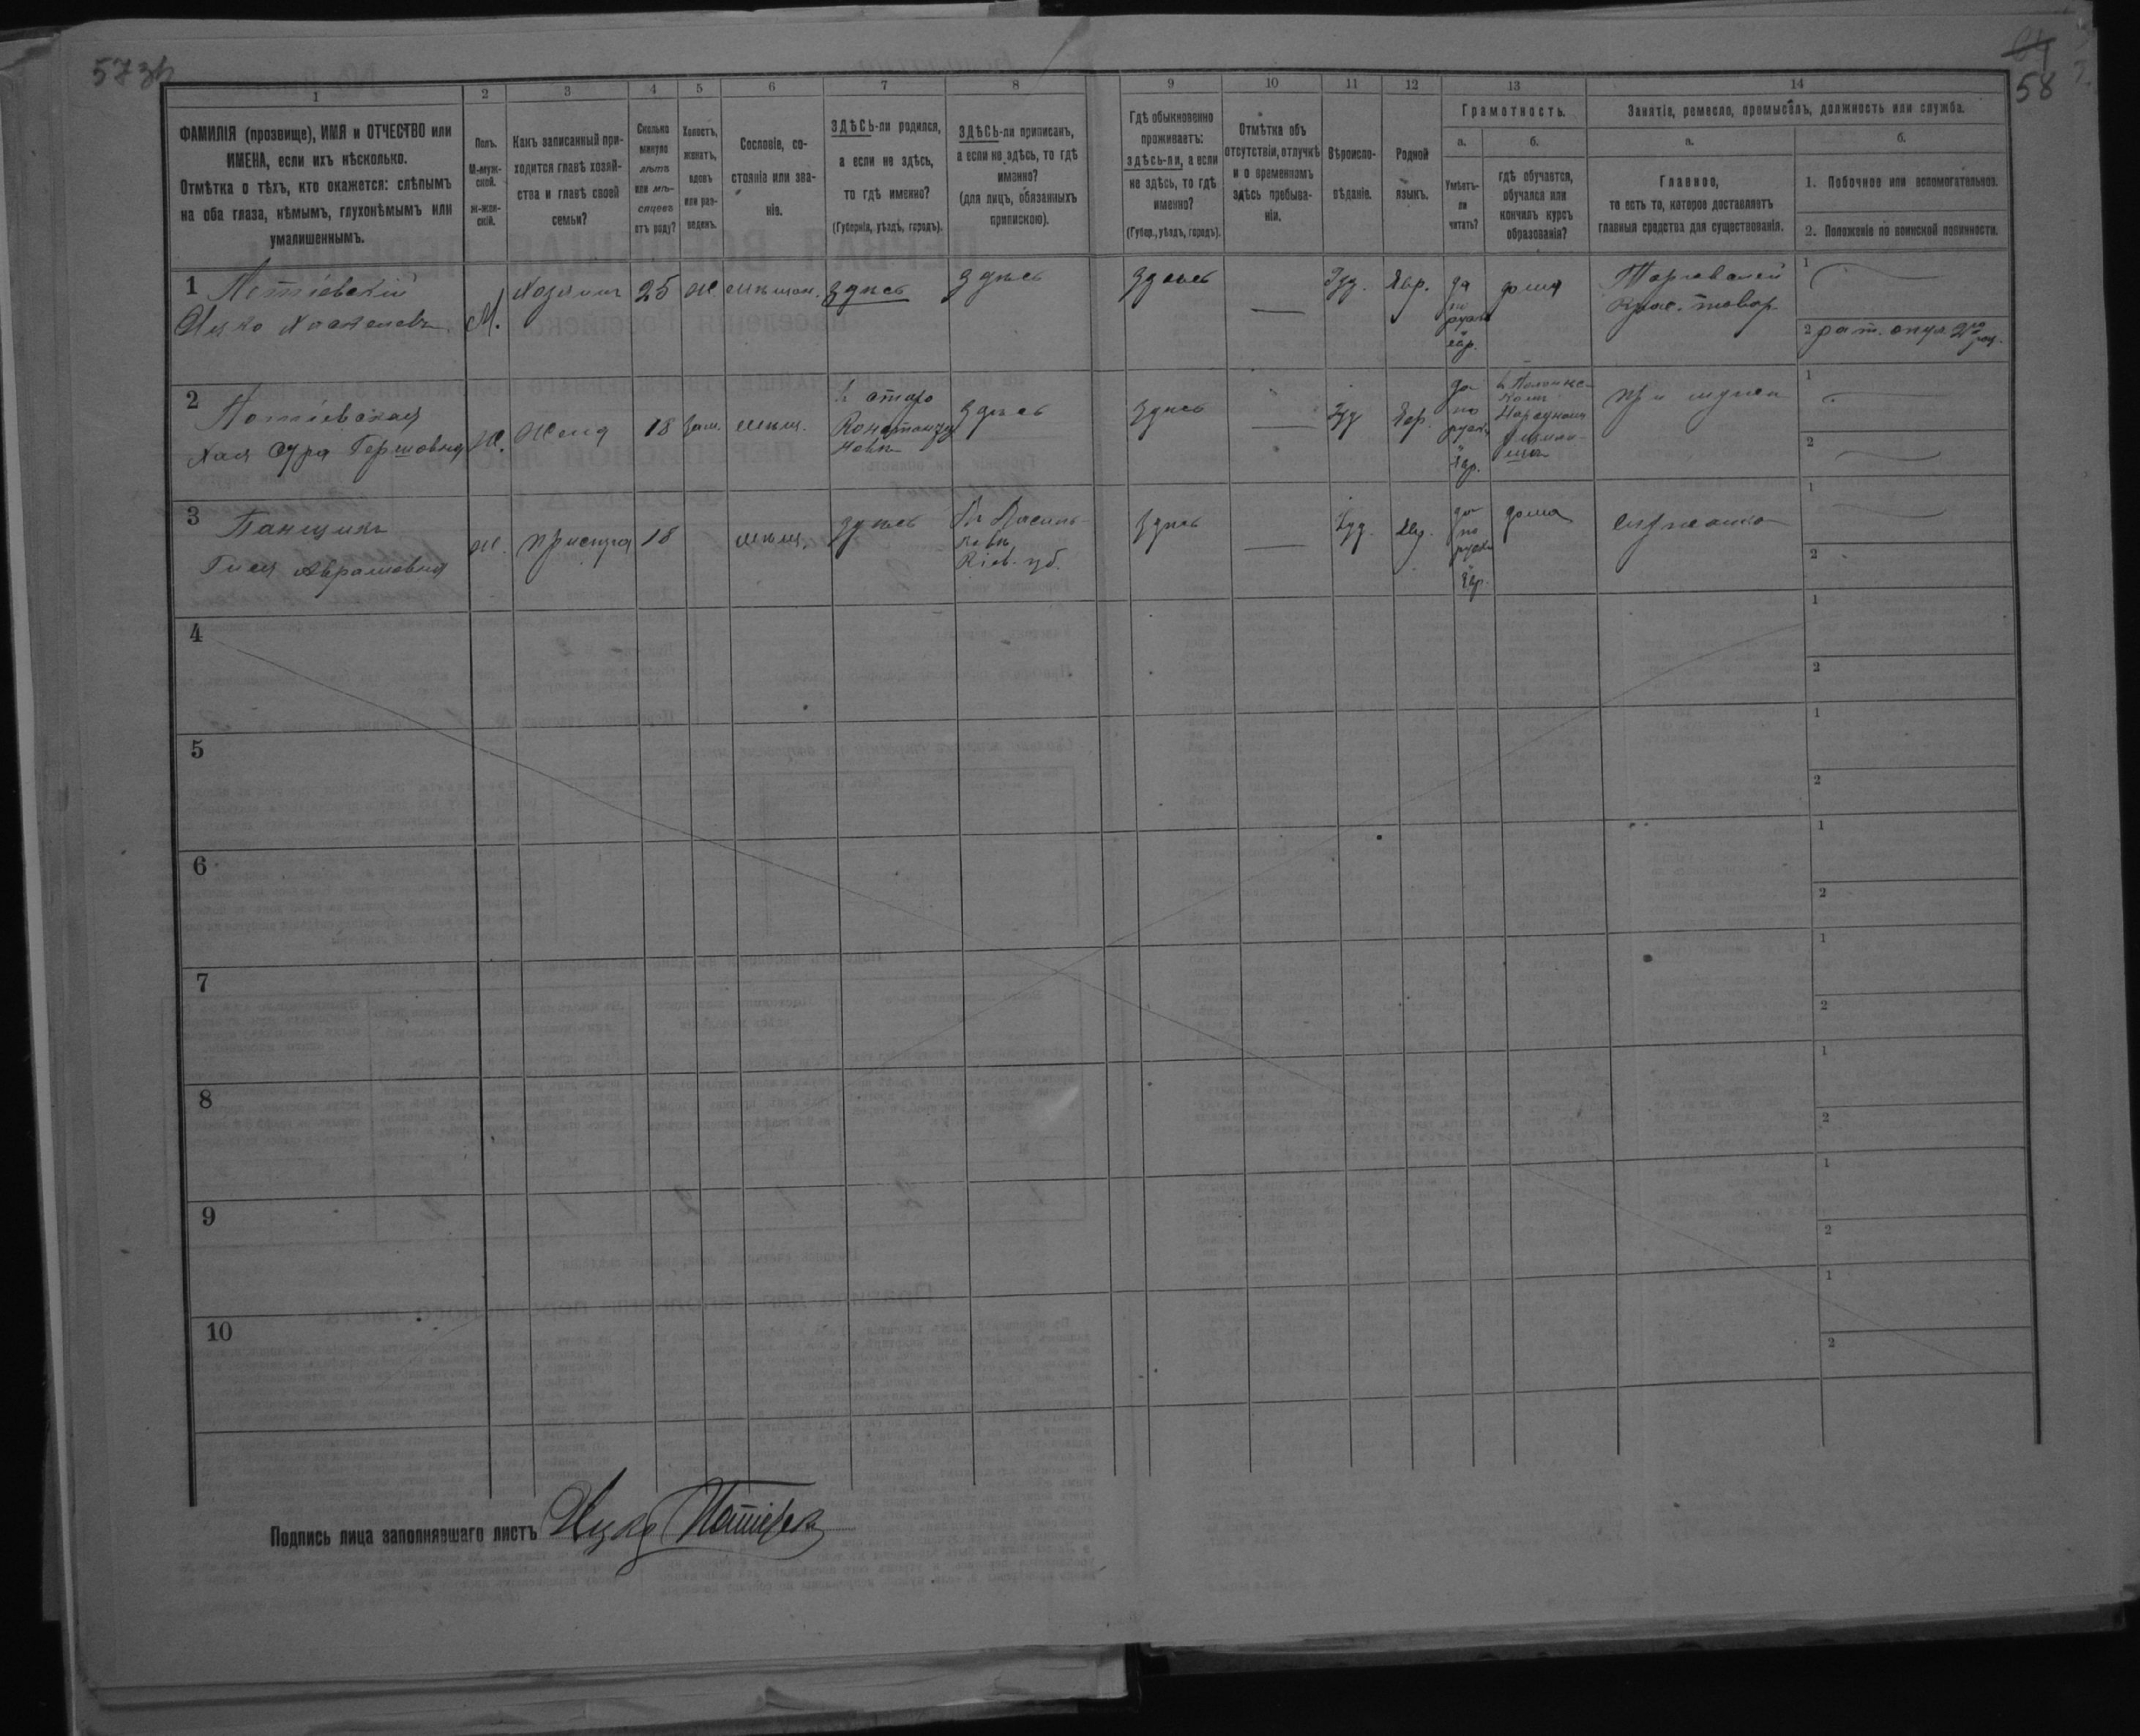 573
64
58
1
2
3
4
5
6
7
8
9
10
11
12
13
14
ФАМИЛІЯ (прозвище), ИМЯ и ОТЧЕСТВО или
ИМЕНА, если ихъ нѣсколько.
Отмѣтка о тѣхъ, кто окажется: слѣпымъ
на оба глаза, нѣмымъ, глухонѣмымъ или
умалишеннымъ.
Полъ.
М-муж-
ской.
Ж-жен-
скій.
Какъ записанный при-
ходится главѣ хозяй-
ства и главѣ своей
семьи?
Сколько
минуло
лѣтъ
или мѣ-
сяцевъ
отъ роду?
Холостъ,
женатъ,
вдовъ
или раз-
веденъ.
Сословіе, со-
стояніе или зва-
ніе.
ЗДѢСЬ-ли родился,
а если не здѣсь,
то гдѣ именно?
(Губернія, уѣздъ, городъ).
ЗДѢСЬ-ли приписанъ,
а если не здѣсь, то гдѣ
именно?
(для лицъ, обязанныхъ
припискою).
Гдѣ обыкновенно
проживаетъ:
здѣсь-ли, а если
не здѣсь, то гдѣ
именно?
(Губер., уѣздъ, городъ).
Отмѣтка объ
отсутствіи, отлучкѣ
и о временномъ
здѣсь пребыва-
ніи.
Вѣроиспо-
вѣданіе.
Родной
языкъ.
Грамотность.
а.
Умѣетъ-
ли
читать?
б.
гдѣ обучается,
обучался или
кончилъ курсъ
образованія?
Занятіе, ремесло, промыселъ, должность или служба.
а.
Главное,
то есть то, которое доставляетъ
главныя средства для существованія.
б.
1. Побочное или вспомогательное.
2. Положеніе по воинской повинности.
1
Потіевскій
Ицко
М.
Хозяинъ
25
Ж.
мѣщан.
здѣсь
здѣсь
здѣсь
—
Іуд.
Евр.
да
по
русски
евр.
дома
Торговлей
крас. товар.
1
2 рат. опол. 2го раз.
2
Потіевская
Хая Сура Гершовна
Ж.
Жена
18
Зам.
мѣщ.
в старо
Константи
новк
здѣсь
здѣсь
—
Іуд
Евр.
да
по
русски
и
Евр.
Народномъ
Училищ
при мужѣ
1
2
3
Панщикъ
Гися Аврамовна
Ж.
прислуга
18
мѣщ.
здѣсь
Въ Василь-
ковѣ
Кіев. губ.
здѣсь
—
Іуд.
Евр.
да
по
русски
и
Евр.
дома
служанка
1
2
4
1
2
5
1
2
6
1
2
7
1
2
8
1
2
9
1
2
10
1
2
Подпись лица заполнявшаго листъ Ицко Потіевск